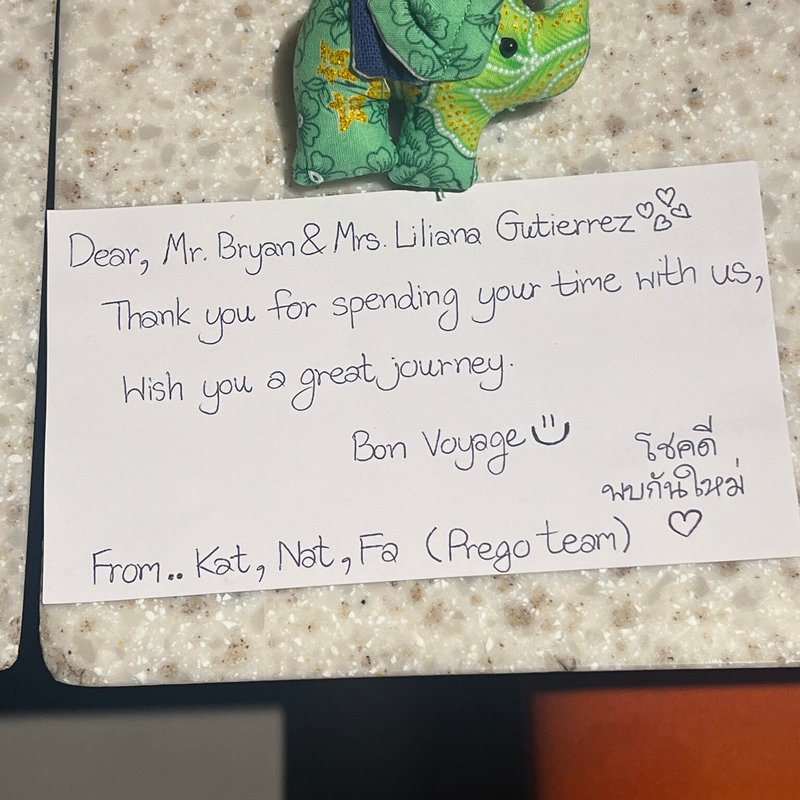 Dear, Mr. Bryan & Mrs. Liliana Gutierrez
Thank you for spending your time with us,
Wish you a great journey.
Bon Voyage
โชคดี
พบกันใหม่
From.. Kat, Nat, Fa (Prego team)